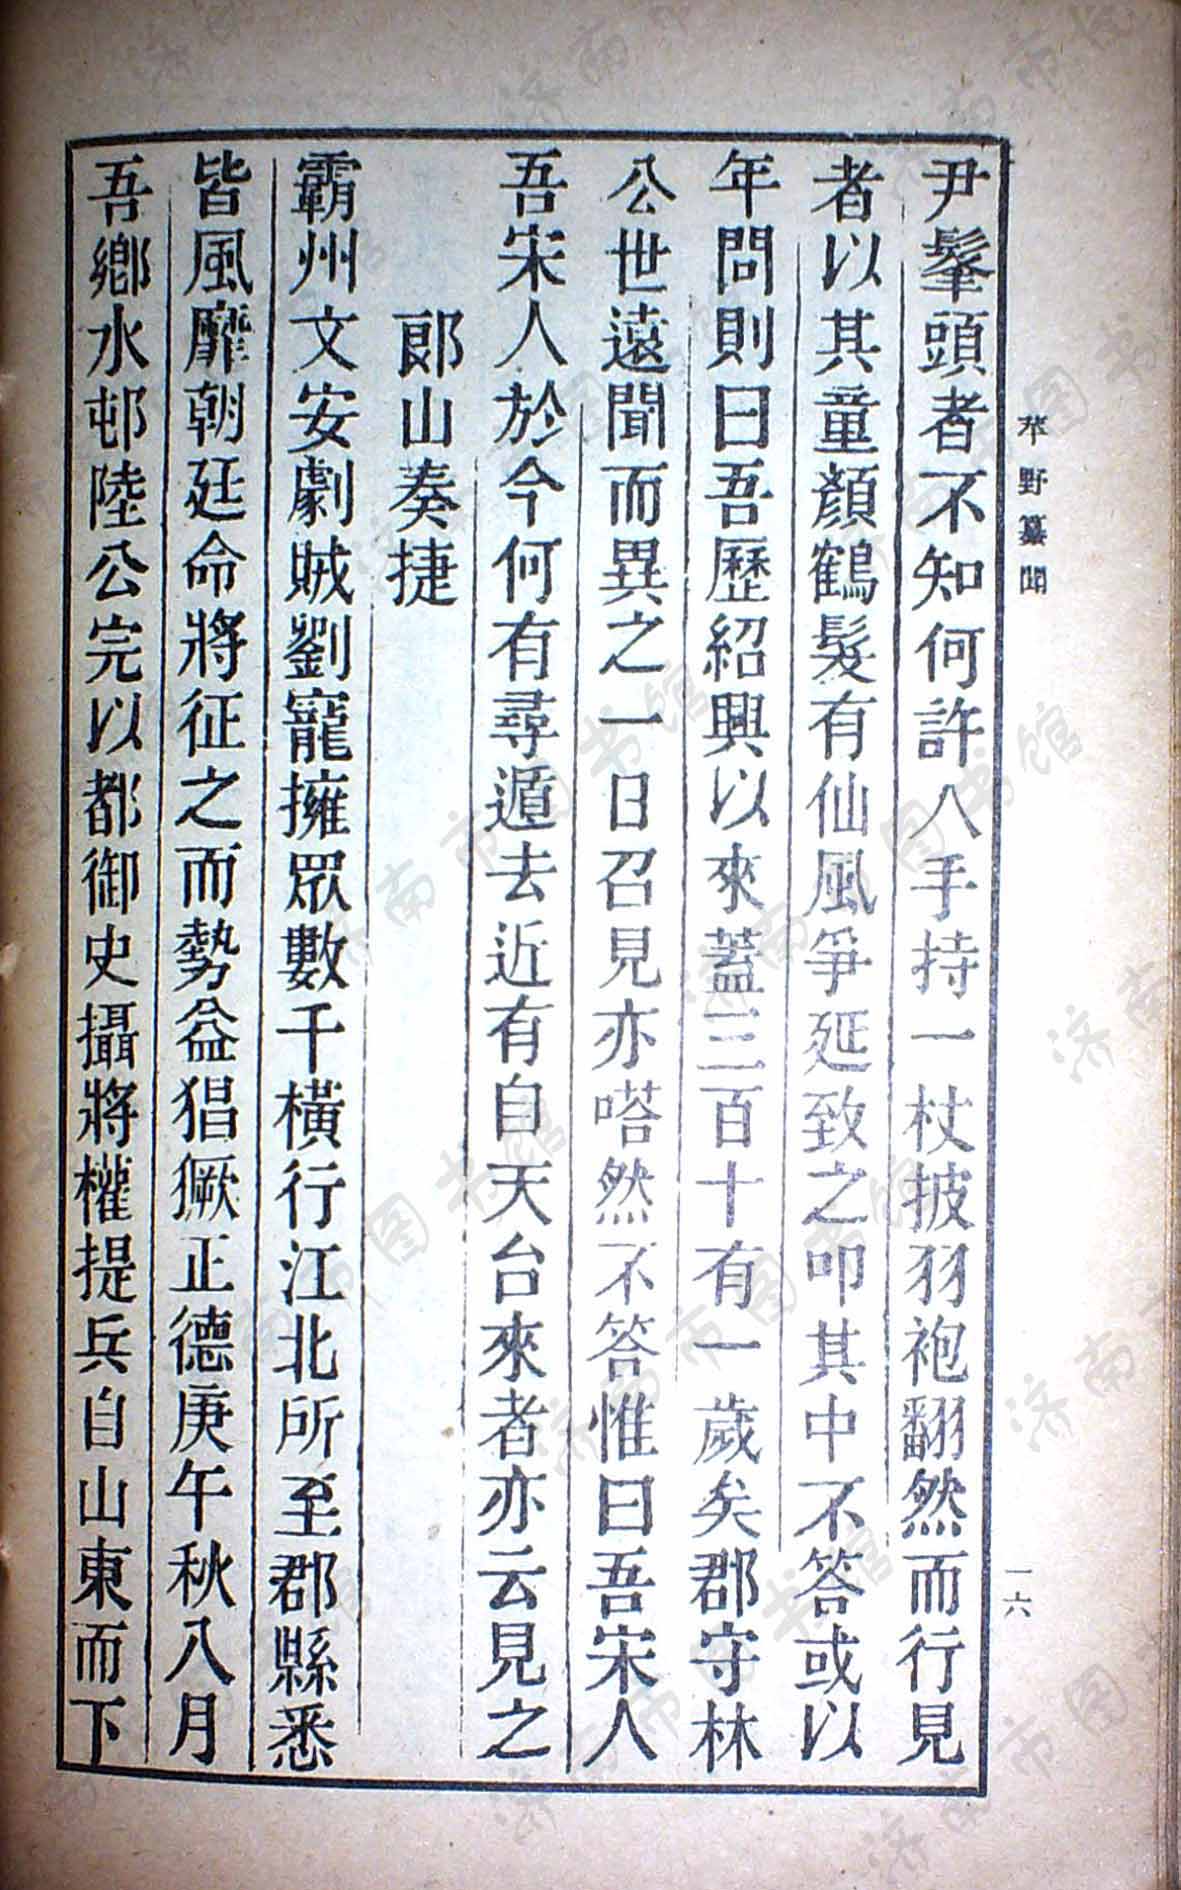 苹野纂聞
一六
尹鬔頭者不知何許人手持一杖披羽袍翻然而行見
者以其童顏鶴髮有仙風爭延致之叩其中不答或以
年問則曰吾歷紹興以來蓋三百十有一歲矣郡守林
公世遠聞而異之一日召見亦嗒然不答惟曰吾宋人
吾宋人於今何有尋遁去近有自天台來者亦云見之
郎山奏捷
霸州文安劇賊劉寵擁眾數千橫行江北所至郡縣悉
皆風靡朝廷命將征之而勢益猖獗正德庚午秋八月
吾鄉水邨陸公完以都御史攝將權提兵自山東而下
济南市图书馆